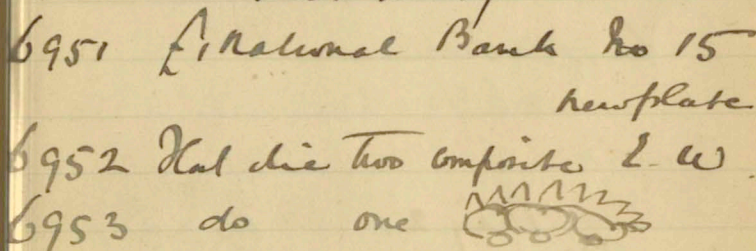 6951 £1 National Bank No 15
new plate
6952 Flat die two composite E. W.
6953 do one